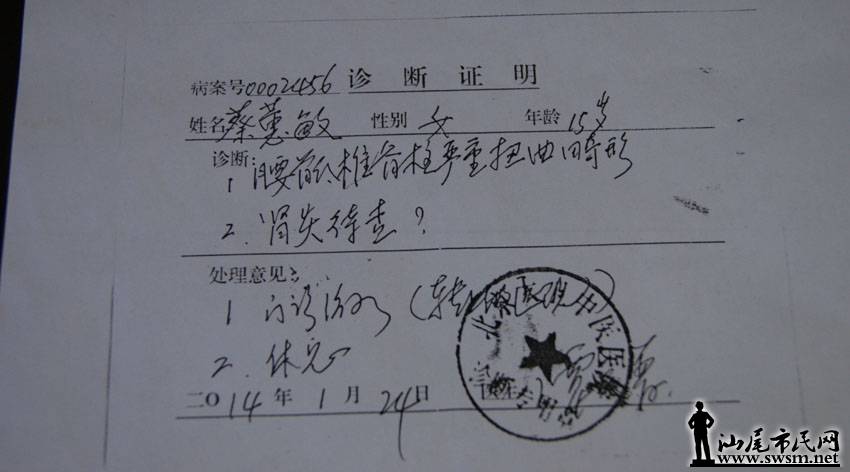 病案号0002456 诊断证明
姓名 蔡蕙敏 性别 女 年龄 15岁
诊断:
1 腰骶椎脊柱严重扭曲畸形
2. 肾炎待查?
处理意见:
1 门诊治疗(转上级医院)
2. 休息
二〇14年1月24日 医生
中医医院
专用
汕尾市民网
www.swsm.net